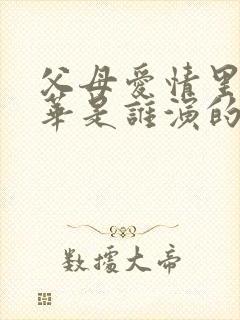 父母爱情里
华是谁演的
数据大帝